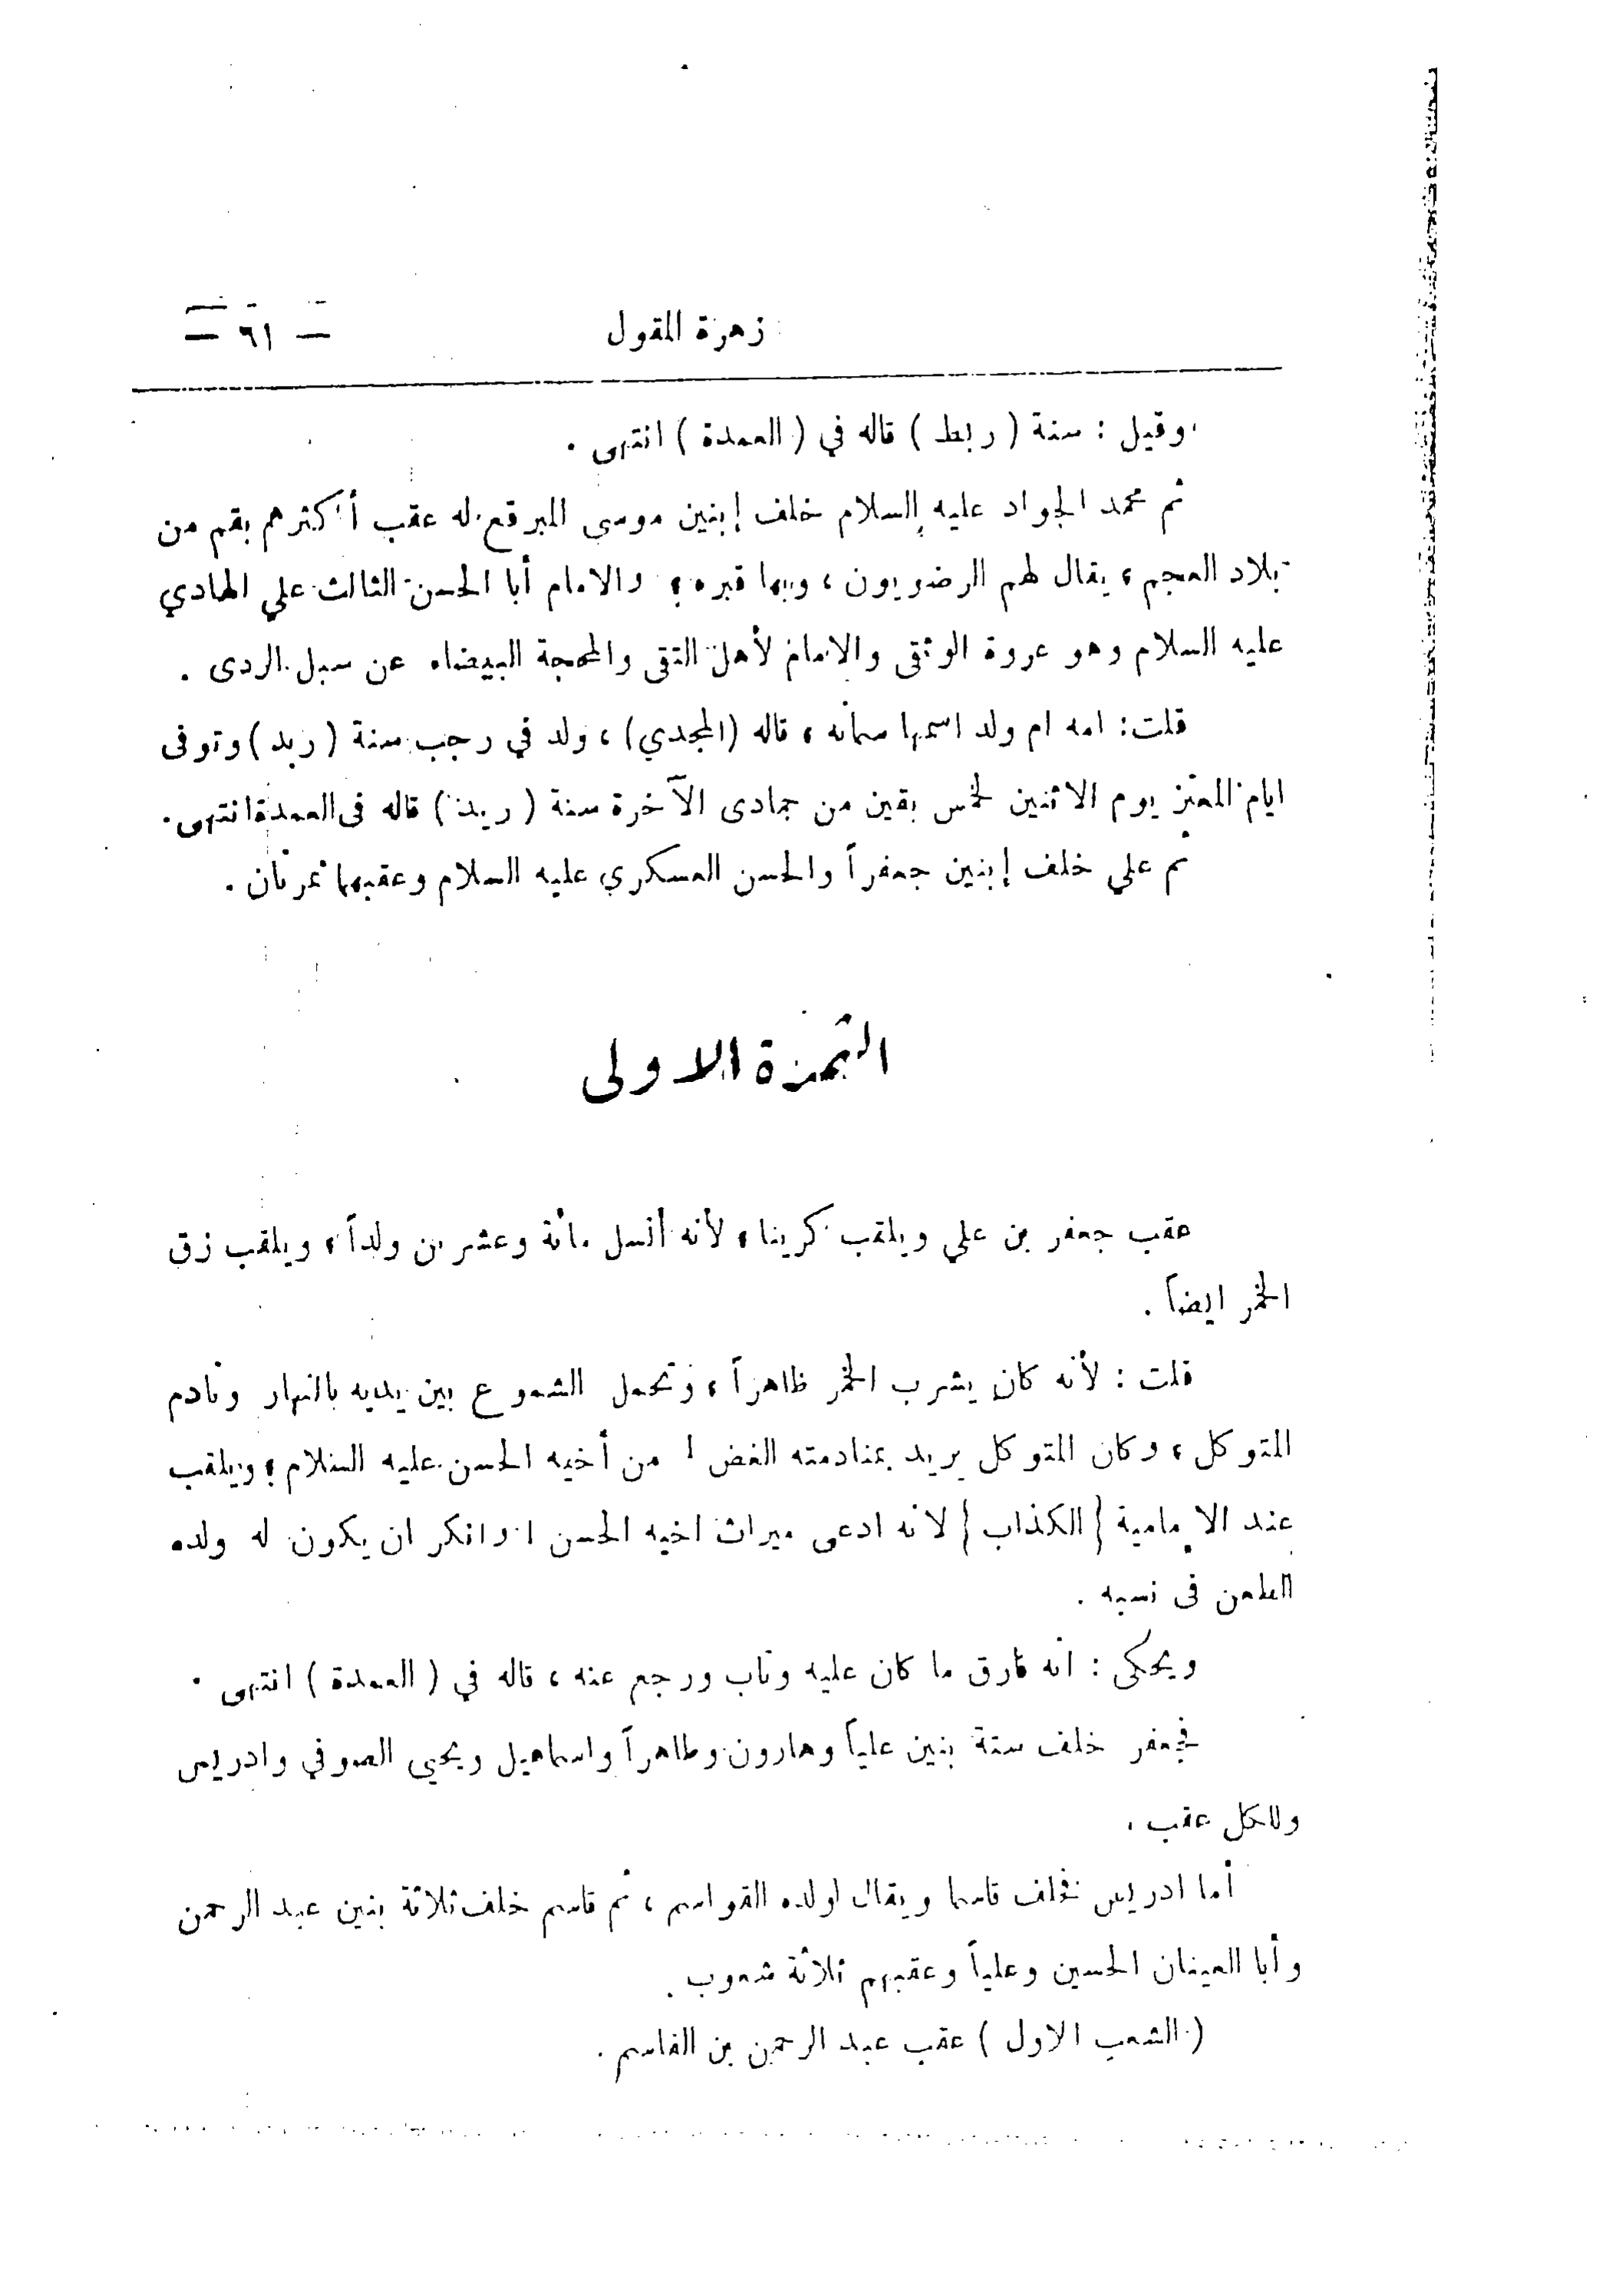 زهرة المقول
— ٦١ —
وقيل : سنة ( ربط ) قاله في ( العمدة ) انتهى .
ثم محمد الجواد عليه السلام خلف إبنين موسى المبرقع له عقب أكثرهم بقم من
بلاد العجم ، يقال لهم الرضويون ، وبها قبره ، والامام أبا الحسن الثالث علي الهادي
عليه السلام وهو عروة الوثقى والامام لأهل التقى والمحجة البيضاء عن سبل الردى .
قلت : امه ام ولد اسمها سمانه ، قاله (المجدي) ، ولد في رجب سنة ( ريد ) وتوفى
ايام المعتز يوم الاثنين لخمس بقين من جمادى الآخرة سنة ( ريد ) قاله فى العمدة انتهى .
ثم علي خلف إبنين جعفراً والحسن العسكري عليه السلام وعقبهما ثمرتان .
الثمرة الاولى
عقب جعفر بن علي ويلقب كرينا ، لأنه أنسل مائة وعشرين ولداً ، ويلقب زق
الخمر ايضاً .
قلت : لأنه كان يشرب الخمر ظاهراً ، وتحمل الشموع بين يديه بالنهار ونادم
المتوكل ، وكان المتوكل يريد بمنادمته الغض من أخيه الحسن عليه السلام ، ويلقب
عند الإمامية ( الكذاب ) لانه ادعى ميراث اخيه الحسن وانكر ان يكون له ولده
الطعن فى نسبه .
ويحكى : انه فارق ما كان عليه وتاب ورجع عنه ، قاله في ( العمدة ) انتهى .
فجعفر خلف ستة بنين علياً وهارون وطاهراً واسماعيل ويحيى الصوفي وادريس
ولكل عقب .
أما ادريس فخلف قاسما ويقال لولده القواسم ، ثم قاسم خلف ثلاثة بنين عبد الرحمن
وأبا العينان الحسين وعلياً وعقبهم ثلاثة شعوب .
( الشعب الاول ) عقب عبد الرحمن بن القاسم .